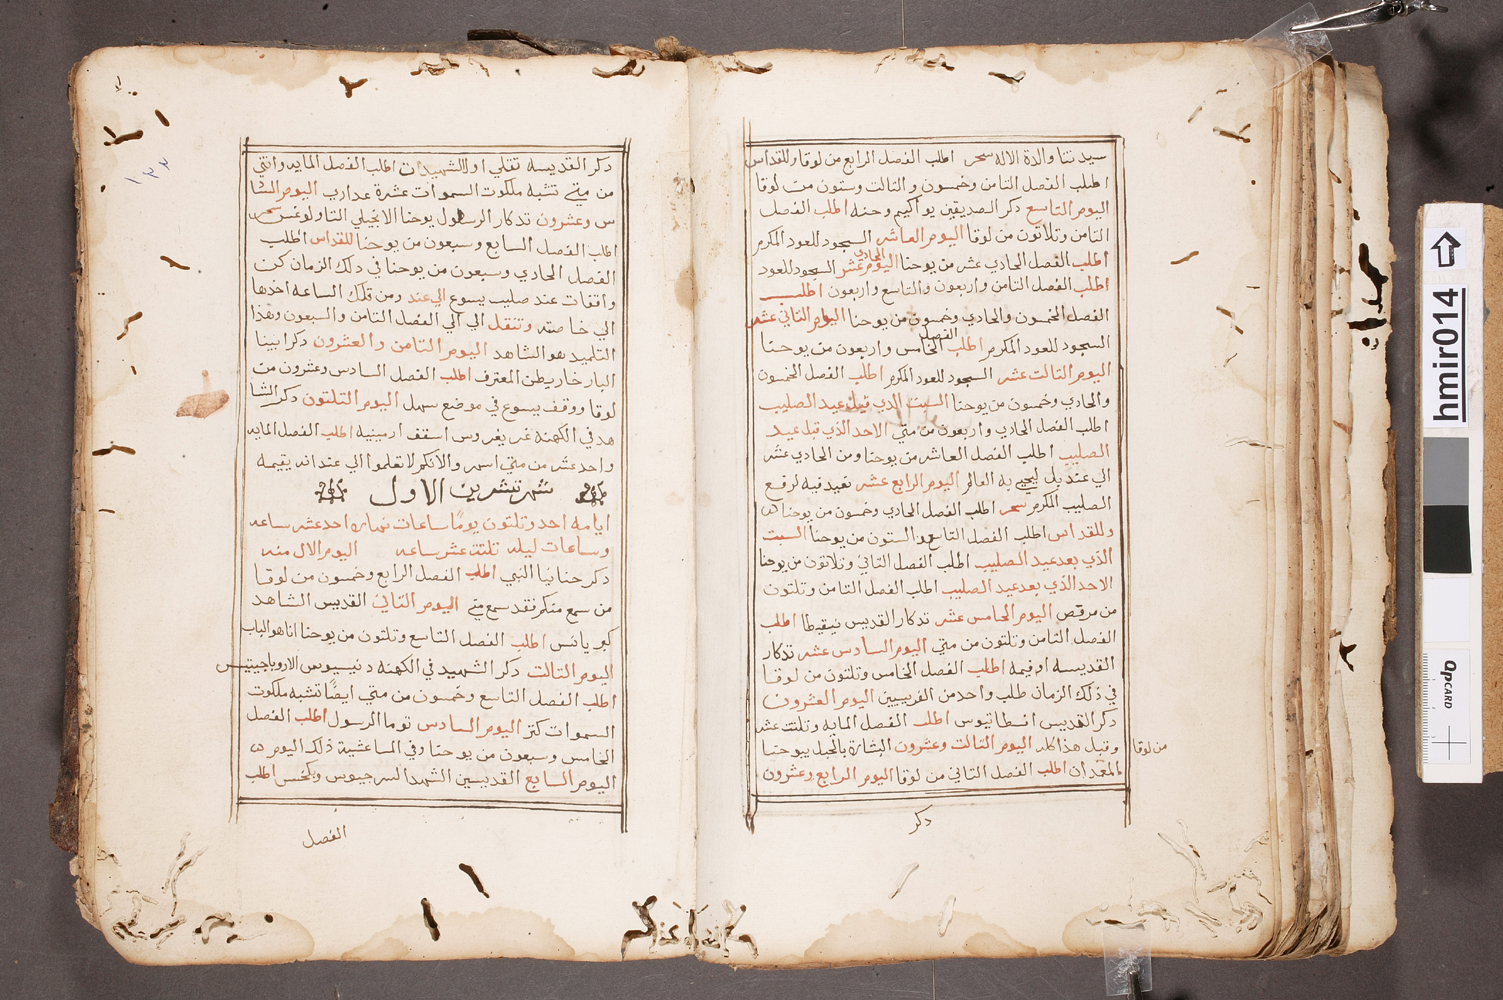 سيدتنا والدة الاله سحر اطلب الفصل الرابع من لوقا وللقداس
اطلب الفصل التامن وخمسون والتالت وستون من لوقا
اليوم التاسع دكر الصديقين يواكيم وحنه اطلب الفصل
التامن وتلاتون من لوقا اليوم العاشر السجود للعود المكرم
اطلب الفصل الحادي عشر من يوحنا اليوم الحادي عشر السجود للعود
اطلب الفصل التامن واربعون والتاسع واربعون اطلب
الفصل الخمسون والحادي وخمسون من يوحنا اليوم التاني عشر
السجود للعود المكرم اطلب الفصل الخامس واربعون من يوحنا
اليوم التالت عشر السجود للعود المكرم اطلب الفصل الخمسون
والحادي وخمسون من يوحنا السبت الدي قبل عيد الصليب
اطلب الفصل الحادي واربعون من متي الاحد الذي قبل عيد
الصليب اطلب الفصل العاشر من يوحنا ومن الحادي عشر
الي عند بل ليحيي به العالم اليوم الرابع عشر نعيد فيه لرفع
الصليب المكرم سحر اطلب الفصل الحادي وخمسون من يوحنا
وللقداس اطلب الفصل التاسع والستون من يوحنا السبت
الذي بعد عيد الصليب اطلب الفصل التاني وتلاتون من يوحنا
الاحد الذي بعد عيد الصليب اطلب الفصل التامن وتلتون
من مرقص اليوم الخامس عشر تدكار القديس نيقيطا اطلب
الفصل التامن وتلتون من متي اليوم السادس عشر تدكار
القديسه اوفيمه اطلب الفصل الخامس وتلتون من لوقا
في ذلك الزمان طلب واحد من الفريسيين اليوم العشرون
دكر القديس اوسطاتيوس اطلب الفصل المايه وتلتت عشر
من لوقا وقبل هذا كله اليوم التالت وعشرون البشارة بالحبل بيوحنا
المعمدان اطلب الفصل التاني من لوقا اليوم الرابع وعشرون
دكر
١٣٢
دكر القديسه تقلي اولا الشهيدات اطلب الفصل المايه واتني
من متي تشبه ملكوت السموات عشرة عداري اليوم السا
س وعشرون تدكار الرسول يوحنا الانجيلي التاولوغس سحر
اطلب الفصل السابع وسبعون من يوحنا للقداس اطلب
الفصل الحادي وسبعون من يوحنا في دلك الزمان كن
واقفات عند صليب يسوع الي عند ومن تلك الساعه اخدها
الي خاصته وتنقل الي الفصل التامن والسبعون وهذا
التلميد هو الشاهد اليوم التامن والعشرون دكر ابينا
البار خاريطن المعترف اطلب الفصل السادس وعشرون من
لوقا ووقف يسوع في موضع سهل اليوم التلتون دكر الشا
هد في الكهنه غريغوريوس اسقف ارمينيه اطلب الفصل المايه
واحد عشر من متي اسهروا لانكم لا تعلموا الي عند انه يقيمه
شهر تشرين الاول
ايامه احد وتلتون يوما ساعات نهاره احد عشر ساعه
وساعات ليله تلتت عشر ساعه اليوم الاول منه
دكر حنانيا النبي اطلب الفصل الرابع وخمسون من لوقا
من سمع منكم فقد سمع مني اليوم التاني القديس الشاهد
كبريانس اطلب الفصل التاسع وتلتون من يوحنا انا هو الباب
اليوم التالت دكر الشهيد في الكهنه دنيسيوس الاروباجيتيس
اطلب الفصل التاسع وخمسون من متي ايضا تشبه ملكوت
السموات كنز اليوم السادس توما الرسول اطلب الفصل
الخامس وسبعون من يوحنا وفي المساعشية ذلك اليوم
اليوم السابع القديسين الشهدا سرجيوس وبكخس اطلب
الفصل
hmir014
QPCARD